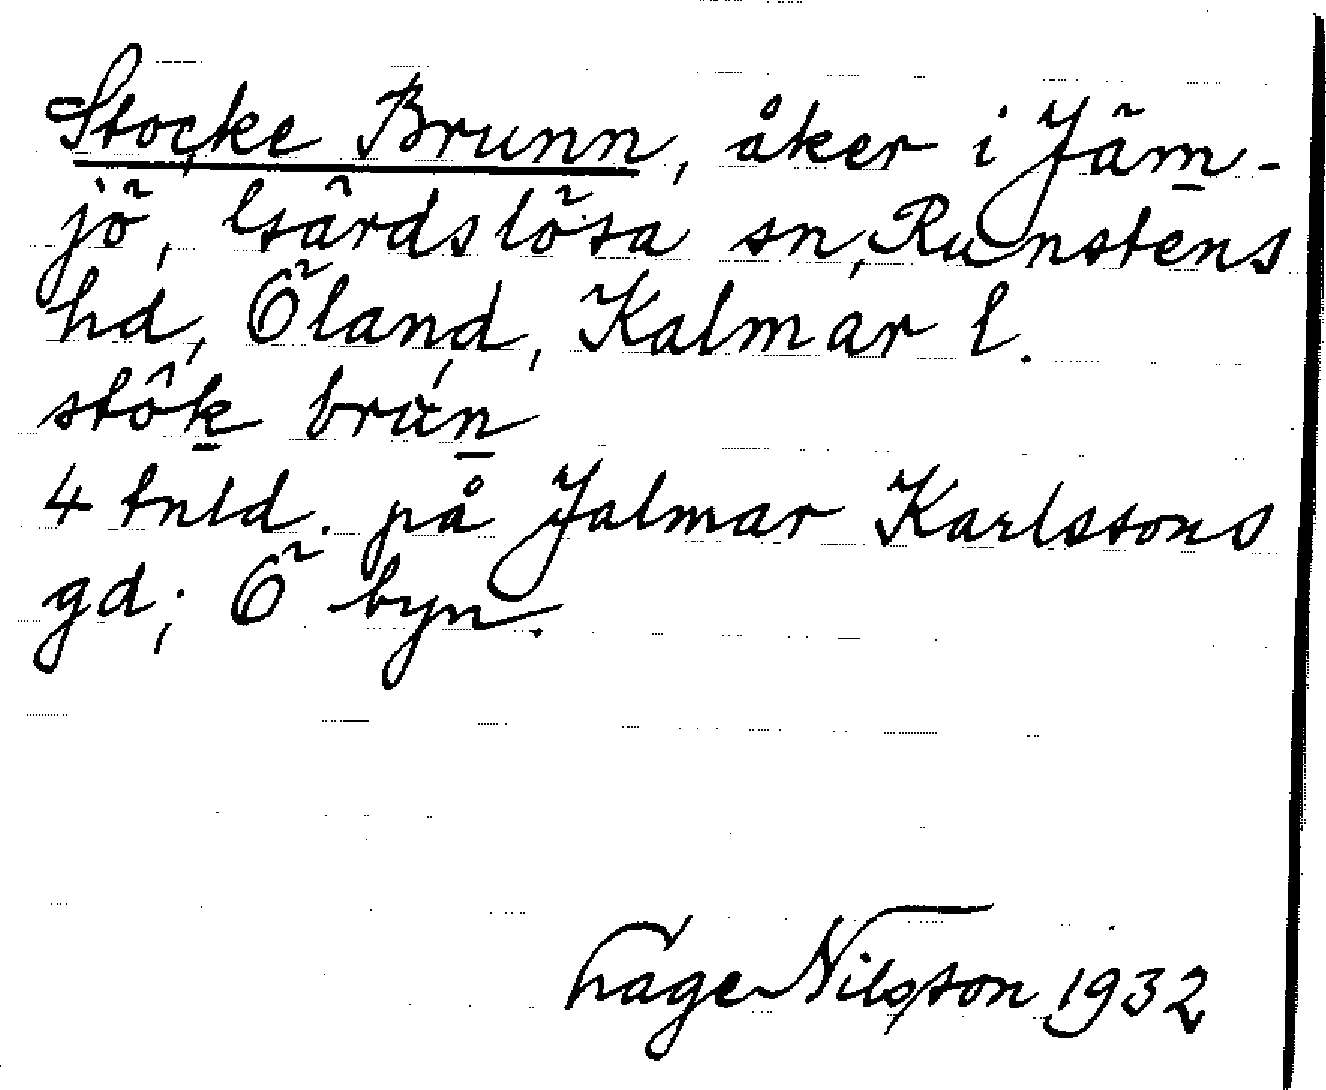 Stocke Brunn, åker i Jäm-
jö, Gärdslösa sn, Runstens
hd, Öland, Kalmar l.
stôk brun
4 tnld. på Jalmar Karlssons
gd; Ö byn.
Hage Nilsson 1932